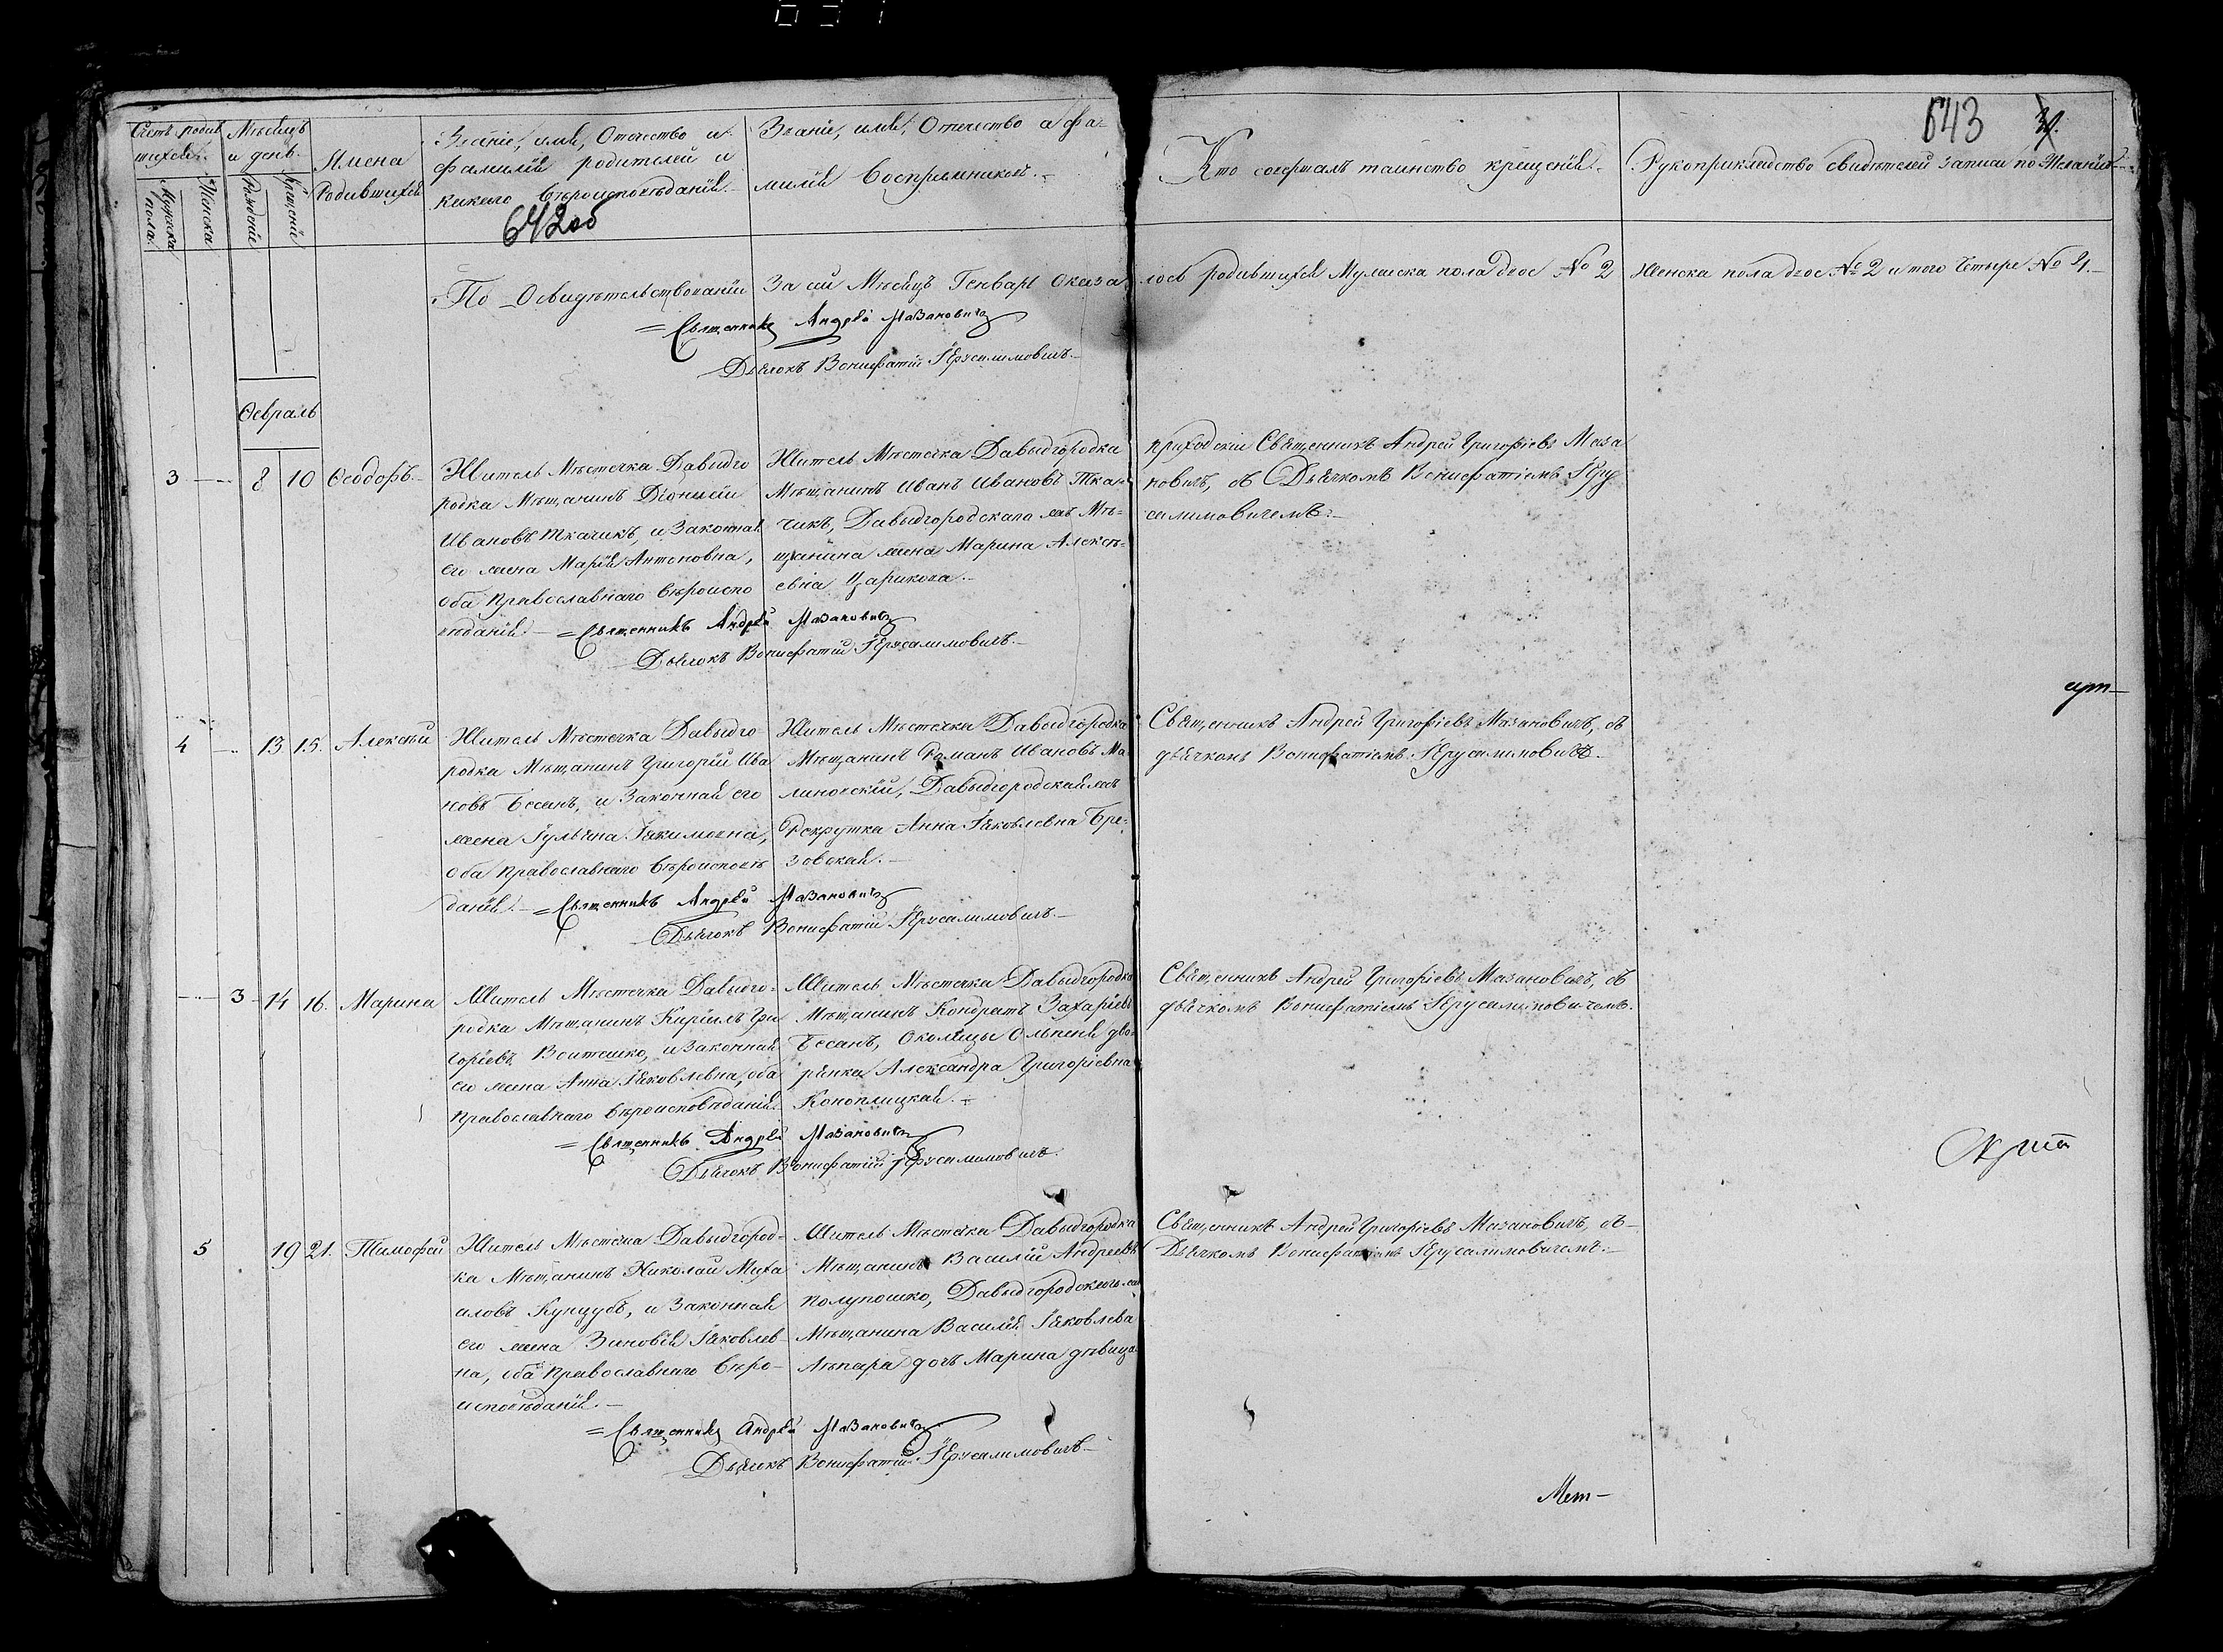 643
Счетъ родив
шихся.
Мѣсяцъ
и день.
Мужеска
пола.
Женска
Рожденіе
Крещеніе
Имена
Родившихся
Званіе, имя, Отечество и
фамилія родителей и
какого вѣроисповѣданія.
642об
Званіе, имя, Отечество а фа-
милія Воспрiемниковъ.
Кто совершалъ таинство крещенія.
Рукоприкладство свидѣтелей записи по Желанію
По Освидѣтельствованіи За сій Мѣсяцъ Генварь Оказа
лось родившихся Мужеска пола двое № 2 Женска пола двое № 2 итого Четыре № 4.
Священникъ Андрей Мазановичъ
Дьячокъ Вонифатій Іерусалимовичъ.
Ѳевраль
3 8 10 Ѳеодоръ
Житель Мѣстечка Давыдго
родка Мѣщанинъ Діонисій
Ивановъ Ткачикъ, и Законная
его жена Марія Антоновна,
оба Православнаго вѣроиспо
вѣданія.
Житель Мѣстечка Давыдгородка
Мѣщанинъ Иванъ Ивановъ Тка-
чикъ, Давыдгородскаго Мѣ-
щанина жена Марина Алексѣ-
евна Царикова.
приходскій Священникъ Андрей Григоріевъ Маза
новичъ, съ Дьячкомъ Вонифатіемъ Іеру
салимовичемъ.
Священникъ Андрей Мазановичъ
Дьячокъ Вонифатій Іерусалимовичъ.
4 13 15. Алексѣй
Житель Мѣстечка Давыдго-
родка Мѣщанинъ Григорій Ива
новъ Бесанъ, и Законная его
жена Іуліана Іакимовна,
оба Православнаго вѣроисповѣ
данія.
Житель Мѣстечка Давыдгородка
Мѣщанинъ Романъ Ивановъ Ма
линовскій, Давыдгородская
Рекрутка Анна Іаковлевна Бре-
зовская.
Священникъ Андрей Григоріевъ Мазановичъ, съ
дьячкомъ Вонифатіемъ Іерусалимовичемъ.
Священникъ Андрей Мазановичъ
Дьячокъ Вонифатій Іерусалимовичъ.
3 14 16. Марина
Житель Мѣстечка Давыдго-
родка Мѣщанинъ Кирилъ Гри
горіевъ Воитешко, и Законная
его жена Анна Іаковлевна, оба
Православнаго вѣроисповѣданія.
Житель Мѣстечка Давыдгородка
Мѣщанинъ Кондратъ Захаріевъ
Бесанъ, Околицы Ольпеня дво-
рянка Александра Григоріевна
Коноплицкая.
Священникъ Андрей Григоріевъ Мазановичъ, съ
дьячкомъ Вонифатіемъ Іерусалимовичемъ.
Священникъ Андрей Мазановичъ
Дьячокъ Вонифатій Іерусалимовичъ.
5 19 21. Тимофей
Житель Мѣстечка Давыдгород-
ка Мѣщанинъ Николай Миха
иловъ Кунцубъ, и Законная
его жена Зиновія Іаковлев-
на, оба Православнаго вѣро-
исповѣданія.
Житель Мѣстечка Давыдгородка
Мѣщанинъ Василій Андреевъ
Полупошко, Давыдгородскаго
Мѣщанина Василія Іаковлева
Лѣпара дочъ Марина дѣвица
Священникъ Андрей Григоріевъ Мазановичъ, съ
Дьячкомъ Вонифатіемъ Іерусалимовичемъ.
Священникъ Андрей Мазановичъ
Дьячокъ Вонифатій Іерусалимовичъ.
Мет-